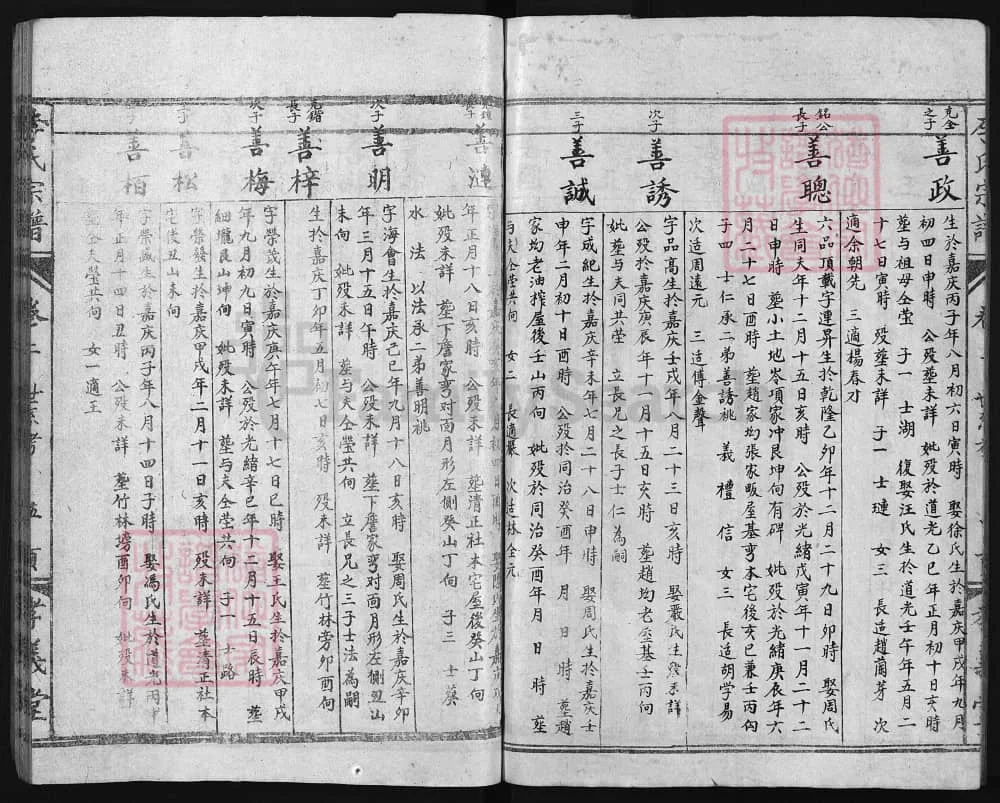 克金之子
善政
生於嘉庆丙子年八月初六日寅時 娶徐氏生於嘉庆甲戌年九月
初四日申時 公殁塟未詳 妣殁於道光乙巳年正月初十日亥時
塟与祖母仝茔 子一 士湖 復娶汪氏生於道光壬午年五月二
十七日寅時 殁塟未詳 子一 士璉 女三 長造趙蘭芽 次
適余朝先 三適楊春才
銘公長子
善聰
六品頂載字運昇生於乾隆乙卯年十二月二十九日卯時 娶周氏
生同夫年十二月十五日亥時 公殁於光緒戊寅年十一月二十二
日申時 塟小土地岺項家冲艮坤向有碑 妣殁於光緒庚辰年六
月二十七日酉時 塟趙家均張家畈屋基弯本宅後亥巳兼壬丙向
子四 士仁承二弟善誘祧 義 禮 信 女三 長造胡学易
次造周遠元 三造傅金聲
次子
善誘
字品高生於嘉庆壬戌年八月二十三日亥時 娶嚴氏生殁未詳
公殁於嘉庆庚辰年十一月十五日亥時 塟趙均老屋基壬丙向
妣塟与夫同共茔 立長兄之長子士仁為嗣
三子
善誠
字成紀生於嘉庆辛未年七月二十八日申時 娶周氏生於嘉庆壬
申年二月初十日酉時 公殁於同治癸酉年 月 日 時 塟趙
家均老油搾屋後壬山丙向 妣殁於同治癸酉年 月 日 時 塟
与夫仝茔共向 女二 長適嚴 次造林全元
善漣
年正月十八日亥時 公殁未詳 塟清正社本宅屋後癸山丁向
妣殁未詳 塟下詹家弯对面月形左側癸山丁向 子三 士葵
水 法 以法承二弟善明祧
次子
善明
字海會生於嘉庆己巳年九月十八日亥時 娶周氏生於嘉庆辛卯
年三月十五日午時 公殁未詳 塟下詹家弯对面月形左側丑山
未向 妣殁未詳 塟与夫仝塋共向 立長兄之三子士法為嗣
克鐕長子
善梓
生於嘉庆丁卯年五月初七日亥時 殁未詳 塟竹林旁卯酉向
次子
善梅
字榮茂生於嘉庆庚午年七月十七日巳時 娶王氏生於嘉庆甲戌
年九月初九日寅時 公殁於光緒辛巳年十二月十五日辰時 塟
細壠艮山坤向 妣殁未詳 塟与夫仝茔共向 子一 士路
善松
字榮發生於嘉庆甲戌年二月十一日亥時 殁未詳 塟清正社本
宅後丑山未向
善栢
字榮誠生於嘉庆丙子年八月十四日子時 娶馮氏生於道光丙
年正月十四日丑時 公殁未詳 塟竹林塝酉卯向 妣殁未詳
塟仝夫塋共向 女一適王
李氏宗譜
孝義堂